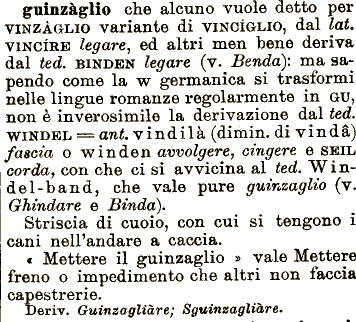 guinzàglio che alcuno vuole detto per
VINZÀGLIO variante di VINCÍGLIO, dal lat.
VINCÍRE legare, ed altri men bene deriva
dal ted. BINDEN legare (v. Benda): ma sa-
pendo come la w germanica si trasformi
nelle lingue romanze regolarmente in GU,
non è inverosimile la derivazione dal ted.
WINDEL = ant. vindilà (dimin. di vindâ)
fascia o winden avvolgere, cingere e SEIL
corda, con che ci si avvicina al ted. Win-
del-band, che vale pure guinzaglio (v.
Ghindare e Binda).
Striscia di cuoio, con cui si tengono i
cani nell'andare a caccia.
« Mettere il guinzaglio » vale Mettere
freno o impedimento che altri non faccia
capestrerie.
Deriv. Guinzagliàre; Sguinzagliàre.